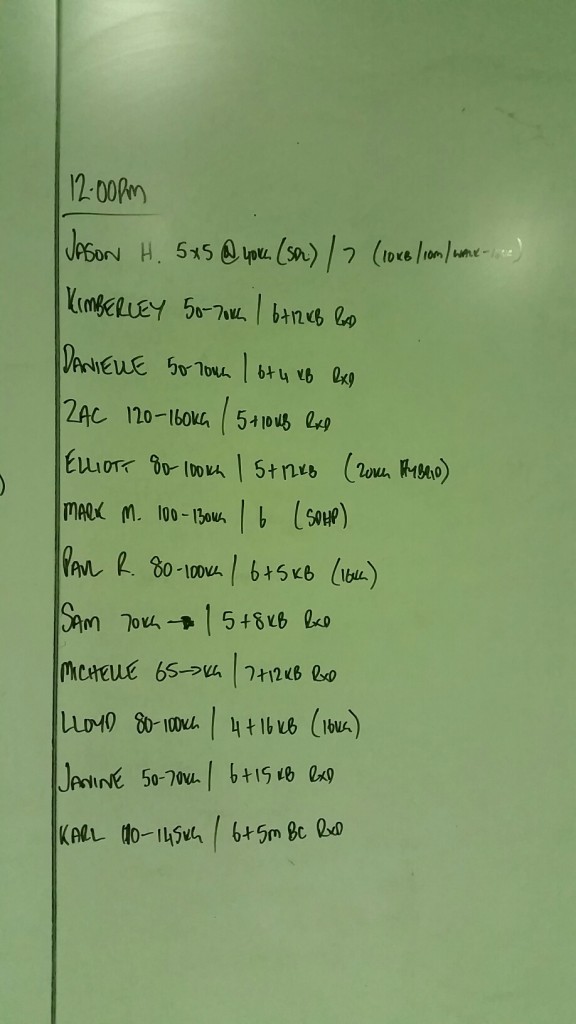 12.00PM
JASON H. 5x5 @ 40KG (SDL) / 7 (10KB/10M/WALK-
KIMBERLEY 50-70KG | 6+12KB RXD
DANIELLE 50-70KG | 6+4 KB RXD
ZAC 120-160KG / 5+10KB RXD
ELLIOTT 80-100KG | 5+12KB (20KG HYBRID)
MARK M. 100-130KG | 6 (SDHP)
PAUL R. 80-100KG / 6+5KB (16KG)
SAM 70KG → | 5+8KB RXD
MICHELLE 65→KG | 7+12KB RXD
LLOYD 80-100KG / 4+16KB (16KG)
JANINE 50-70KG / 6+15KB RXD
KARL 110-145KG / 6+5M BC RXD